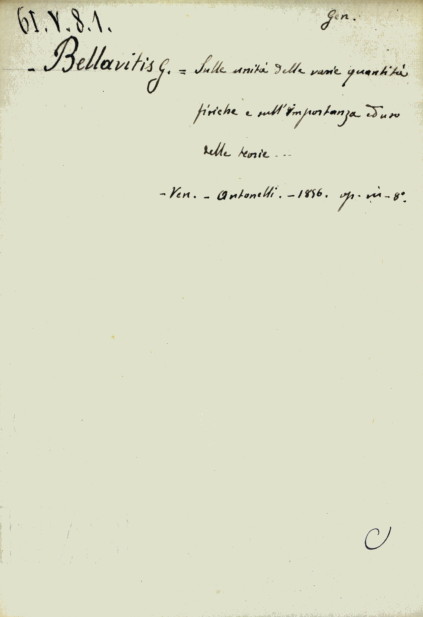 61.V.8.1.
Gen.
- Bellavitis G. = Sulle unità delle varie quantità
fisiche e sull'importanza ed uso
delle teorie ...
- Ven. - Antonelli. - 1856. op. in - 8°.
C